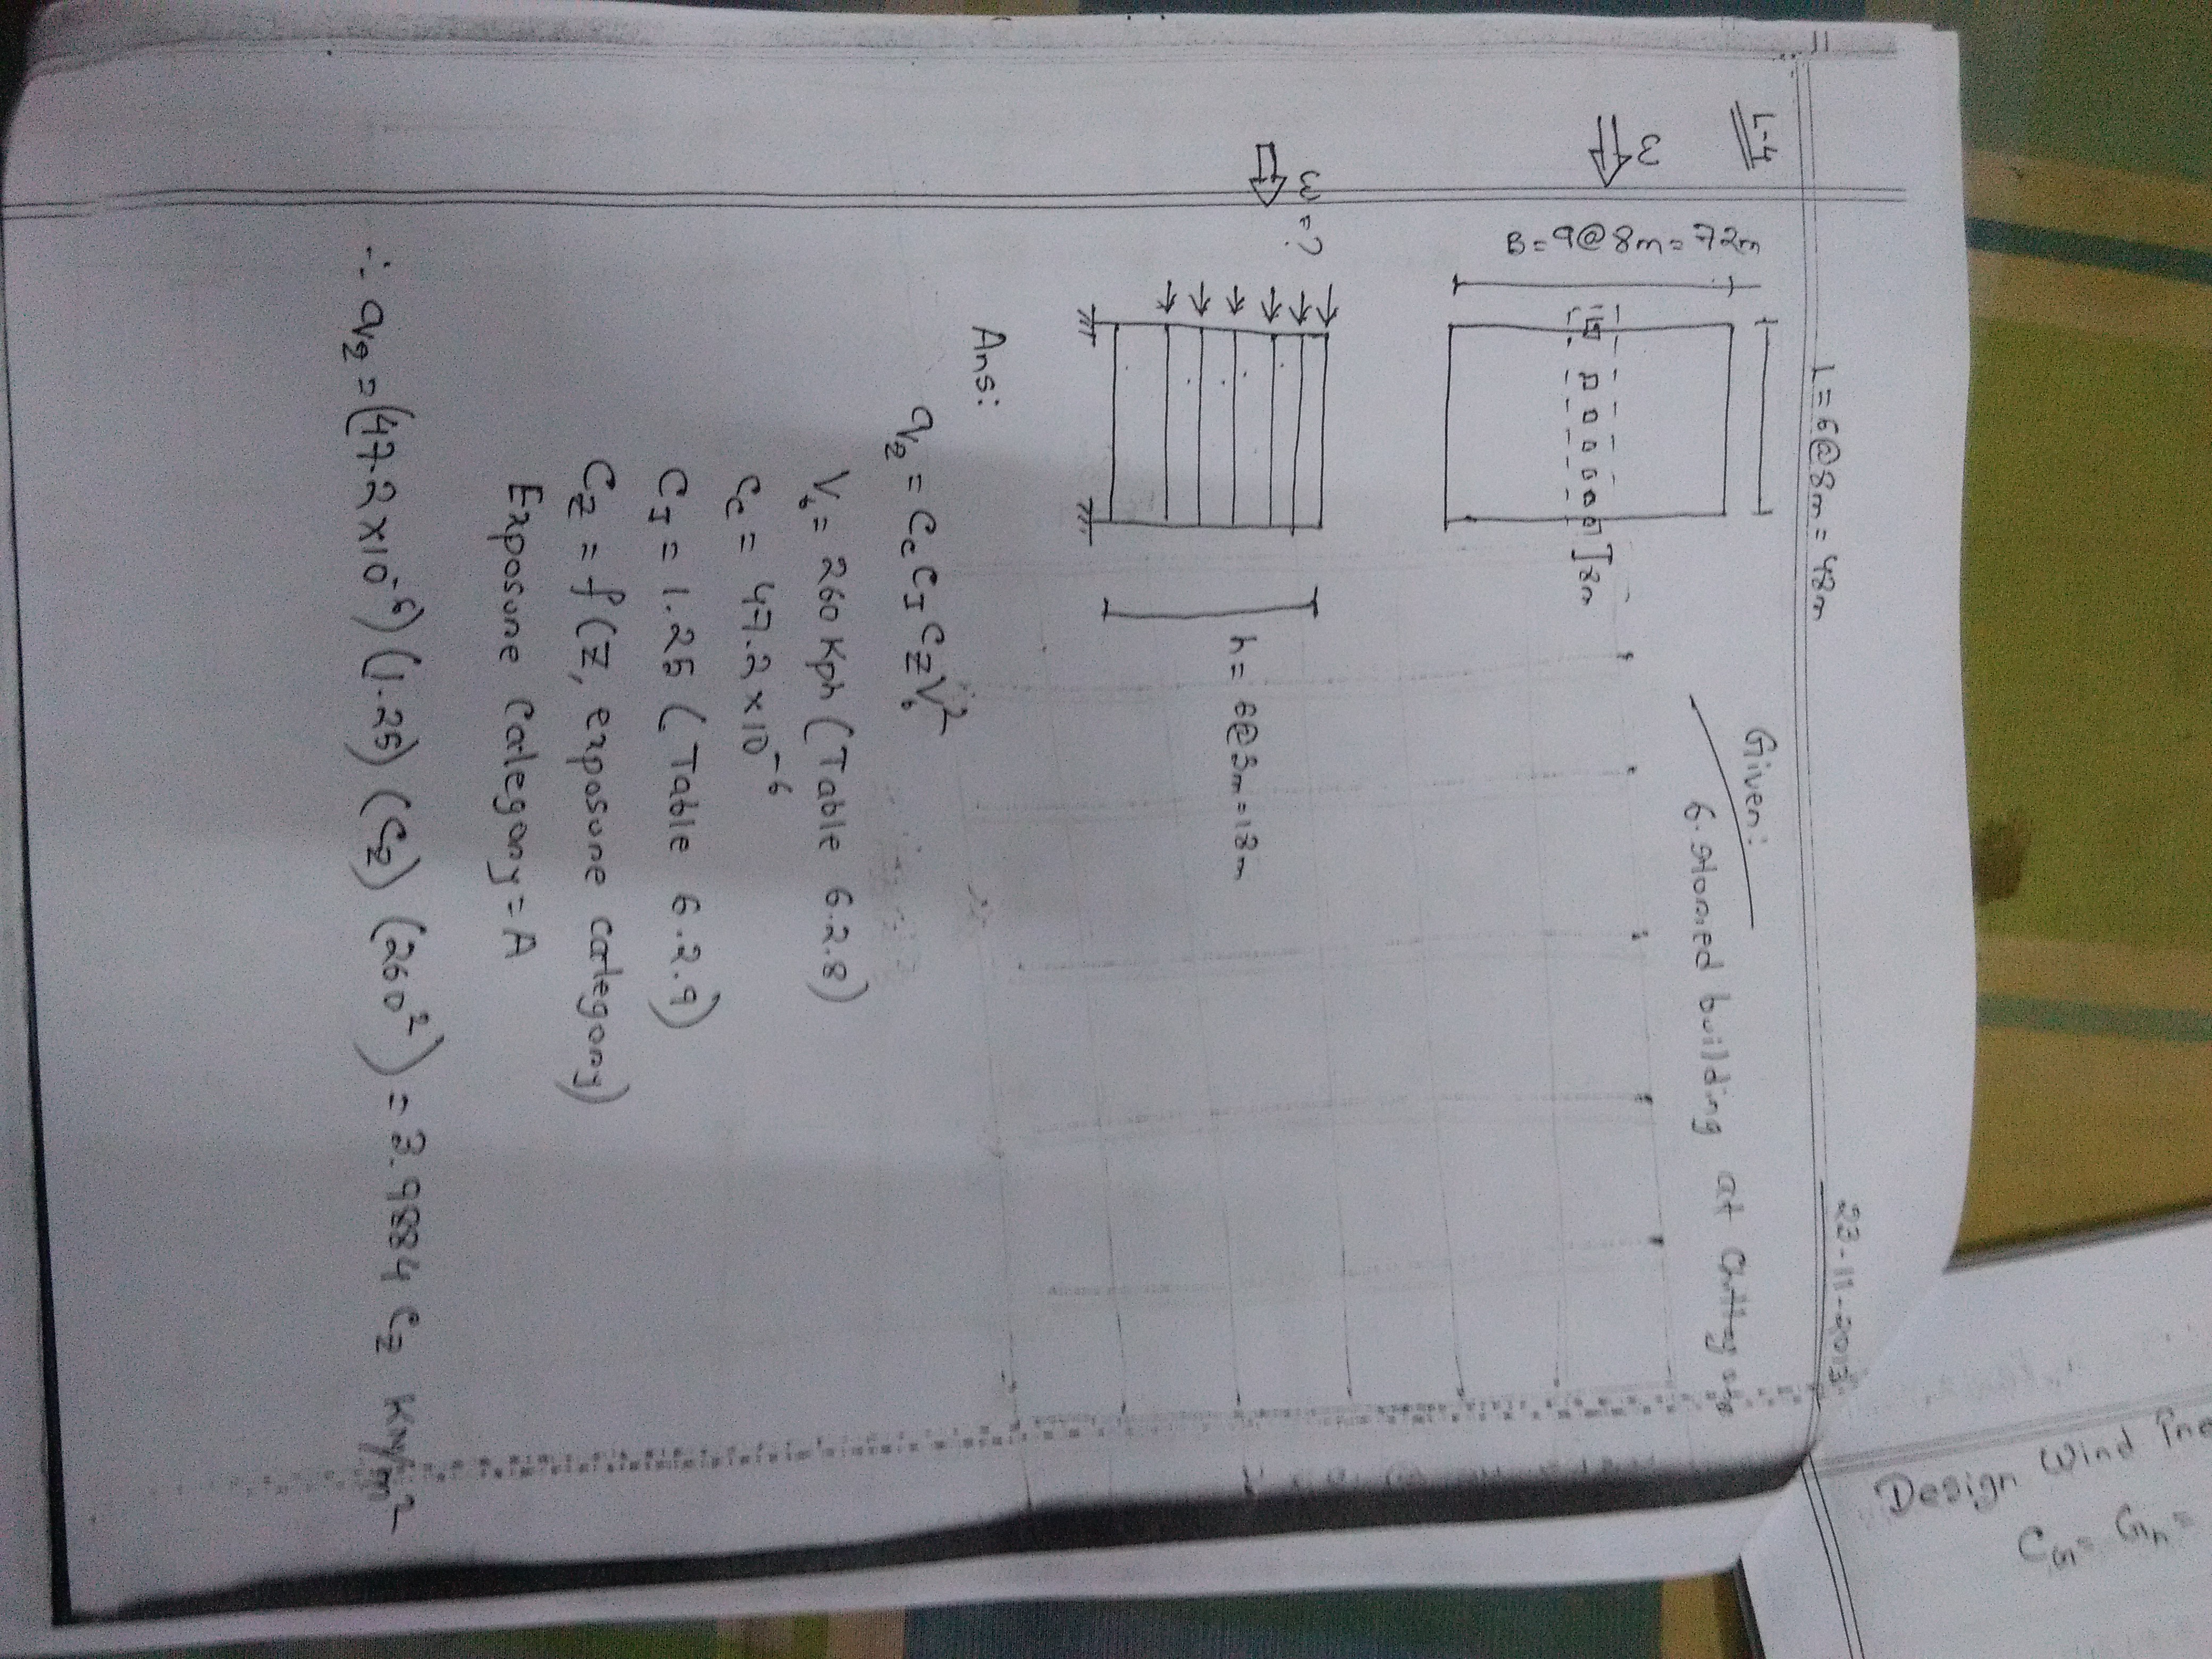 23-11-2013
L-4
L=6@8m = 48m
Given:
6. storied building at
W
B=9@8m=72m
8m
W=?
h= 6@3m=18m
Ans:
qz = Cc CI Cz Vb²
Vb = 260 Kph (Table 6.2.8)
Cc = 47.2×10⁻⁶
CI = 1.25 (Table 6.2.9)
Cz = f(z, exposure category)
Exposure Category = A
∴ qz = (47.2×10⁻⁶) (1.25) (Cz) (260²) = 3.9884 Cz KN/m²
Design Wind Pre
CG = Gh =